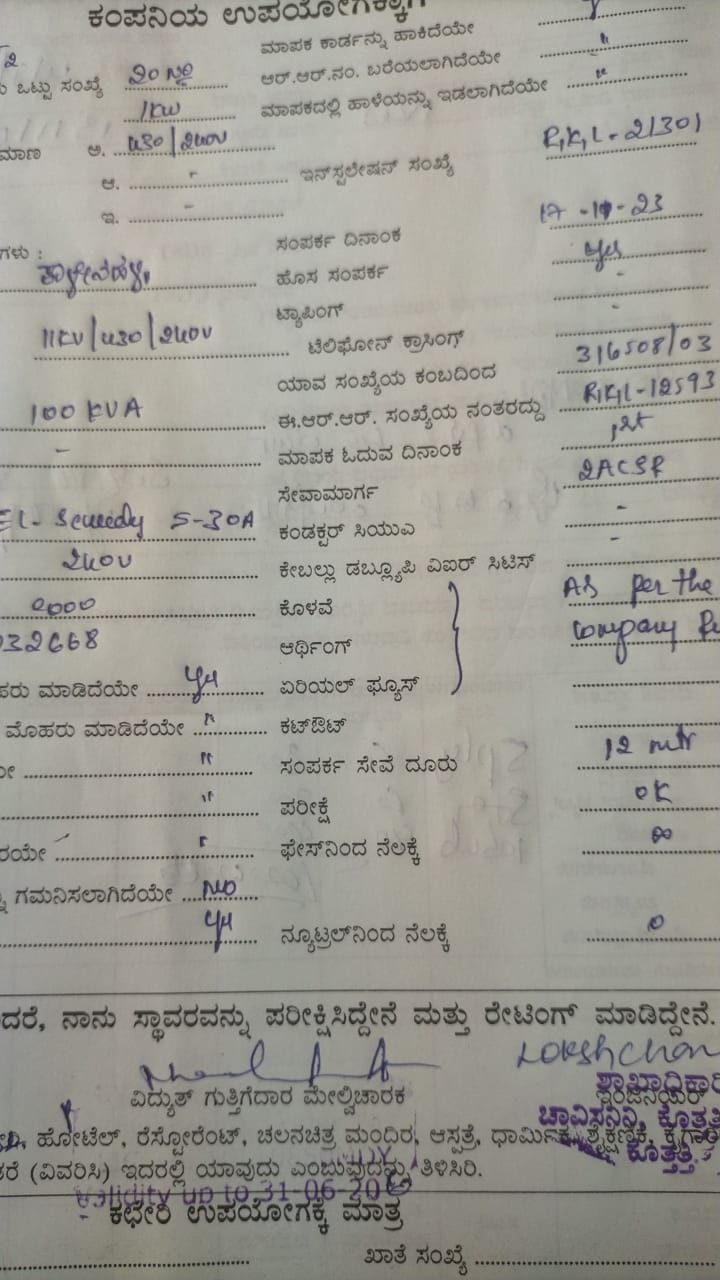 ಕಂಪನಿಯ ಉಪಯೋಗಕ್ಕಾಗಿ
ಮಾಪಕ ಕಾರ್ಡನ್ನು ಹಾಕಿದೆಯೇ
ಒಟ್ಟು ಸಂಖ್ಯೆ 20 ಆರ್.ಆರ್.ನಂ. ಬರೆಯಲಾಗಿದೆಯೇ "
1KW ಮಾಪಕದಲ್ಲಿ ಹಾಳೆಯನ್ನು ಇಡಲಾಗಿದೆಯೇ "
ಅ. 430/240V
ಆ. - ಇನ್‌ಸ್ಟಲೇಷನ್ ಸಂಖ್ಯೆ 21301
ಇ. -
ಗಳು : ಸಂಪರ್ಕ ದಿನಾಂಕ 23
ಹೊಸ ಸಂಪರ್ಕ Yes
ಟ್ಯಾಪಿಂಗ್ -
11KV/430/240V ಟೆಲಿಫೋನ್ ಕ್ರಾಸಿಂಗ್ -
ಯಾವ ಸಂಖ್ಯೆಯ ಕಂಬದಿಂದ 316508/03
100 KVA ಈ.ಆರ್.ಆರ್. ಸಂಖ್ಯೆಯ ನಂತರದ್ದು 12593
- ಮಾಪಕ ಓದುವ ದಿನಾಂಕ 1st
ಸೇವಾಮಾರ್ಗ 2ACSR
5-30A ಕಂಡಕ್ಟರ್ ಸಿಯುಎ -
240V ಕೇಬಲ್ಲು ಡಬ್ಲ್ಯೂಪಿ ವಿಐರ್ ಸಿಟಿಸ್ -
2000 ಕೊಳವೆ As per the
32668 ಆರ್ಥಿಂಗ್ Company
ಹರು ಮಾಡಿದೆಯೇ Yes ಏರಿಯಲ್ ಫ್ಯೂಸ್
ಮೊಹರು ಮಾಡಿದೆಯೇ " ಕಟ್‌ಔಟ್
" ಸಂಪರ್ಕ ಸೇವೆ ದೂರು 12 mtr
" ಪರೀಕ್ಷೆ OK
ರೆಯೇ " ಫೇಸ್‌ನಿಂದ ನೆಲಕ್ಕೆ ∞
ಗಮನಿಸಲಾಗಿದೆಯೇ NO
Yes ನ್ಯೂಟ್ರಲ್‌ನಿಂದ ನೆಲಕ್ಕೆ 0
ದರೆ, ನಾನು ಸ್ಥಾವರವನ್ನು ಪರೀಕ್ಷಿಸಿದ್ದೇನೆ ಮತ್ತು ರೇಟಿಂಗ್ ಮಾಡಿದ್ದೇನೆ.
ವಿದ್ಯುತ್ ಗುತ್ತಿಗೆದಾರ ಮೇಲ್ವಿಚಾರಕ
ಹೋಟೆಲ್, ರೆಸ್ಟೋರೆಂಟ್, ಚಲನಚಿತ್ರ ಮಂದಿರ, ಆಸ್ಪತ್ರೆ, ಧಾರ್ಮಿಕ, ಶೈಕ್ಷಣಿಕ,
ರೆ (ವಿವರಿಸಿ) ಇದರಲ್ಲಿ ಯಾವುದು ಎಂಬುವುದನ್ನು ತಿಳಿಸಿರಿ.
Validity up to 31-06-20
ಕಛೇರಿ ಉಪಯೋಗಕ್ಕೆ ಮಾತ್ರ
ಖಾತೆ ಸಂಖ್ಯೆ